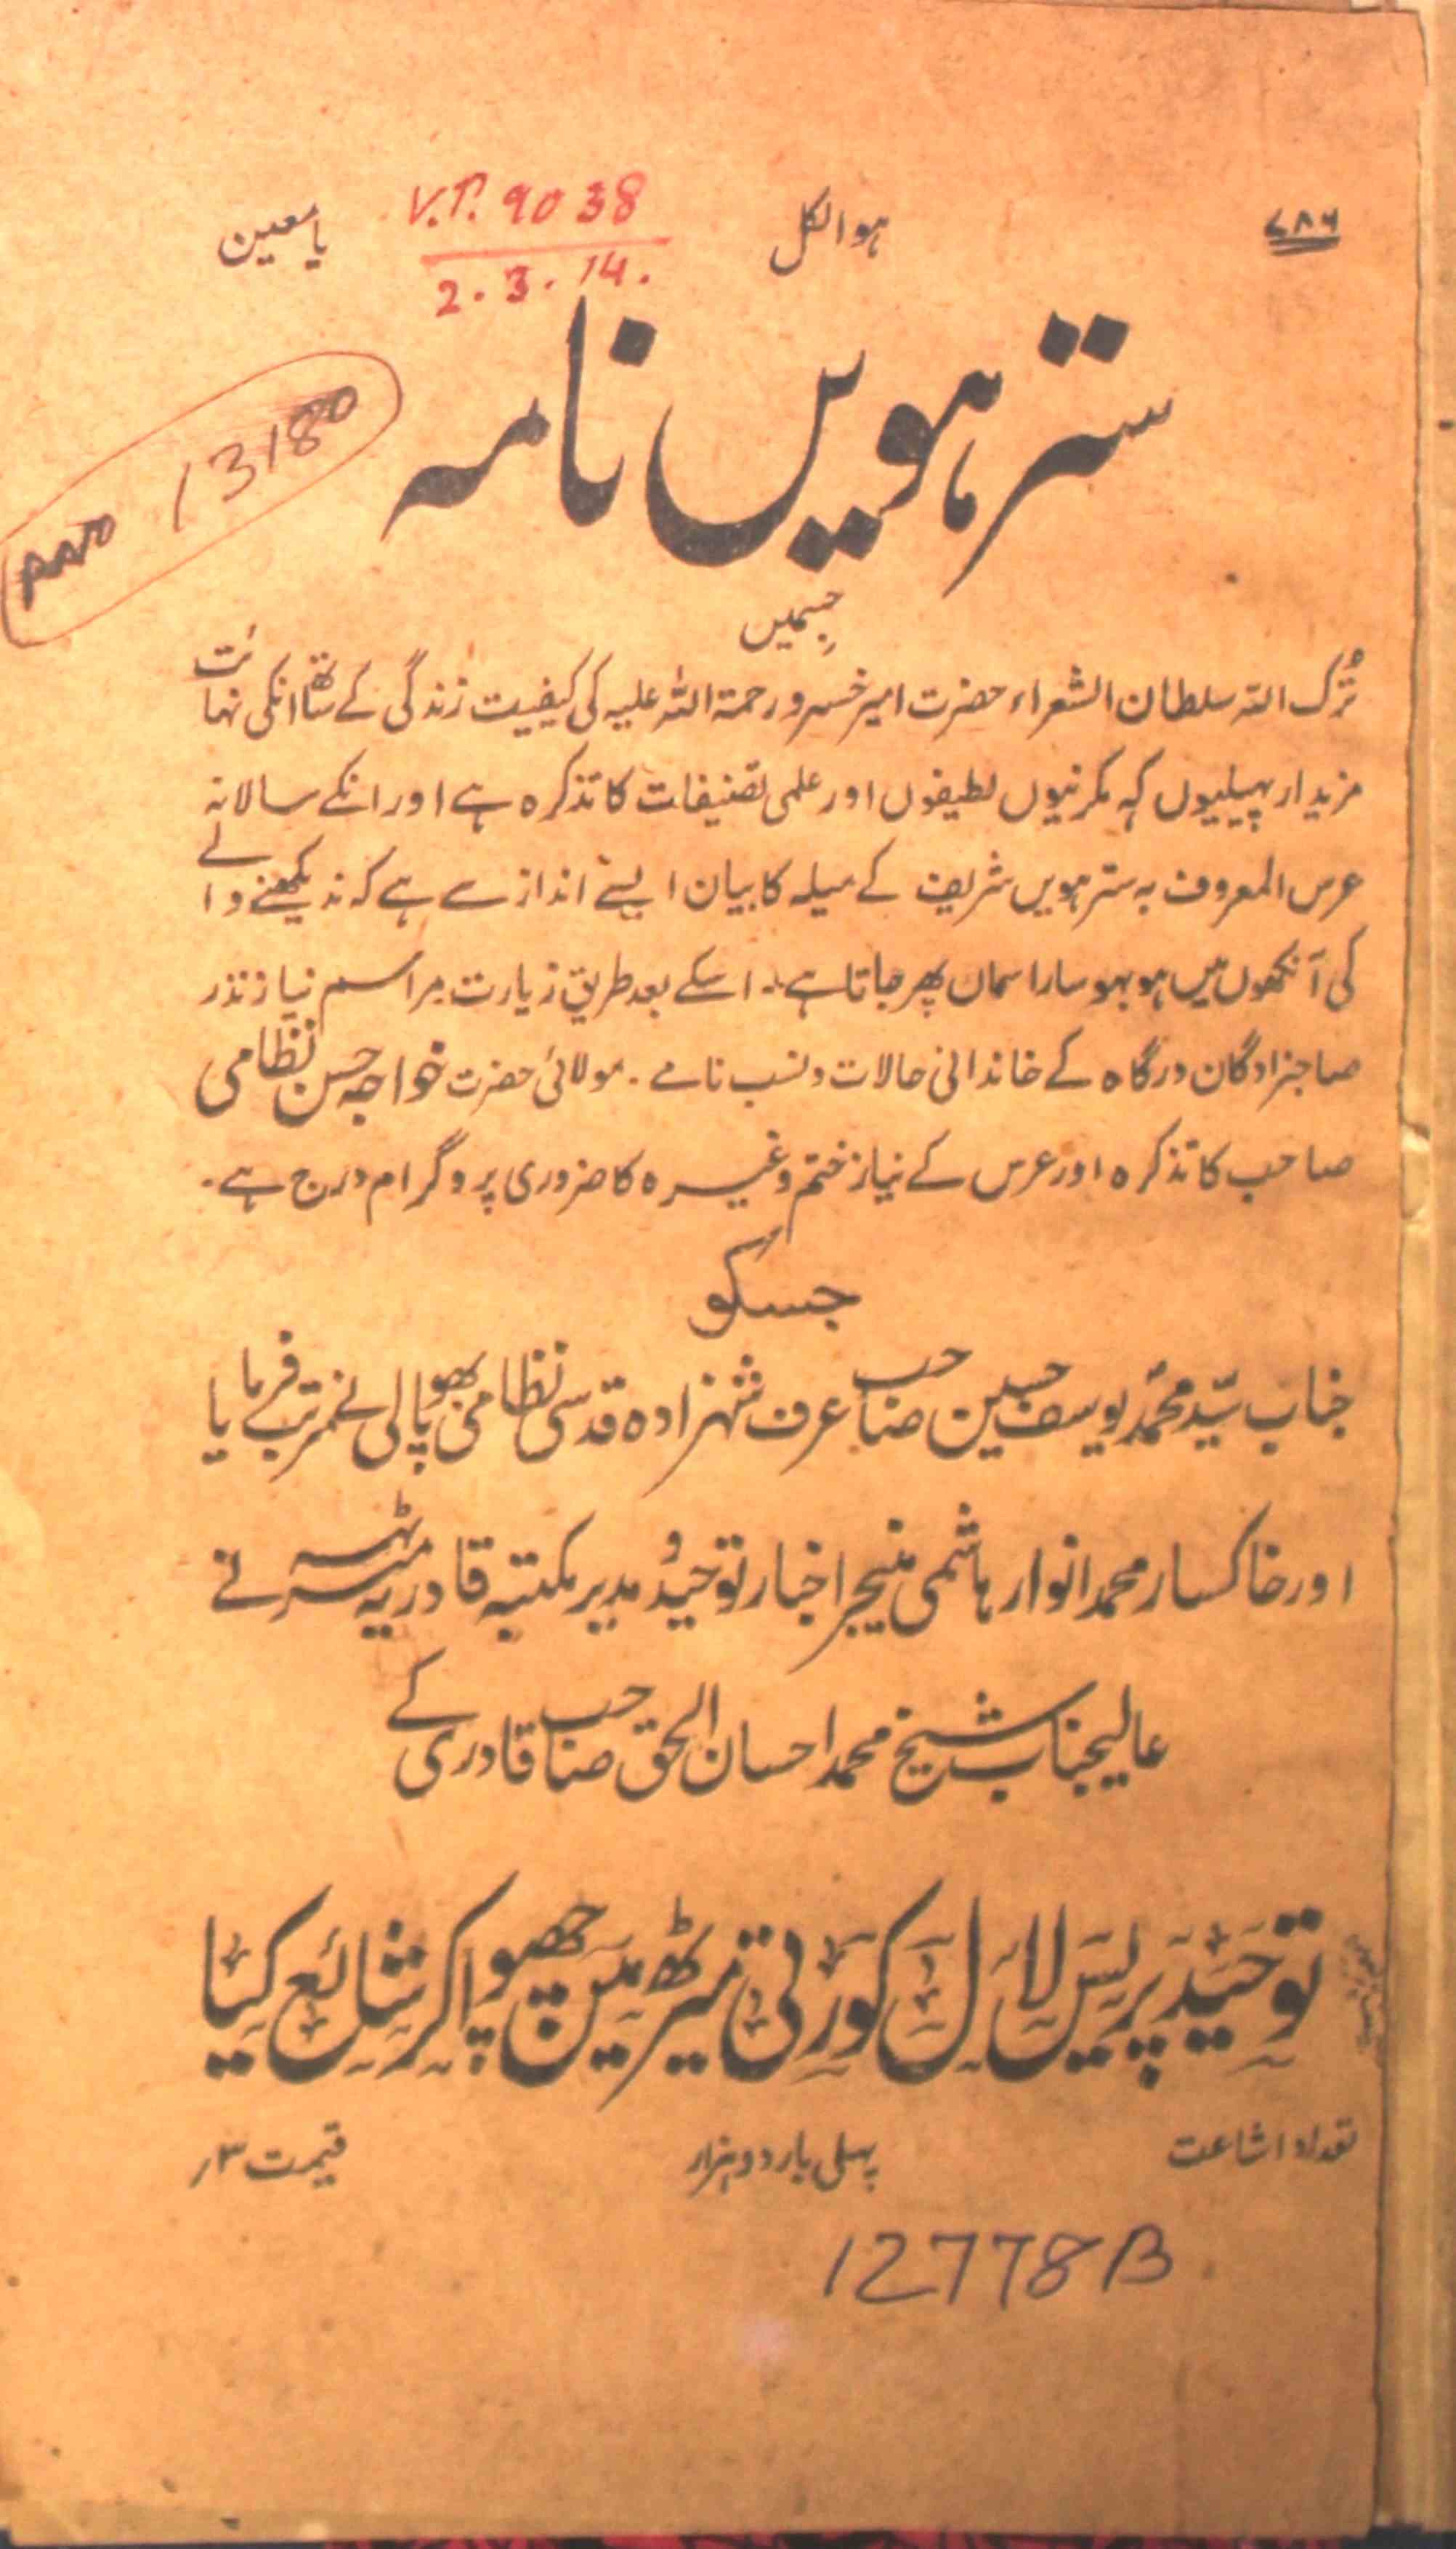 ۷۸۶ ہو الکل یا معین
V.P. 9038
2.3.14.
سترہویں نامہ
13180
جسمیں
تُرک اللہ سلطان الشعراء حضرت امیر خسرو رحمۃ اللہ علیہ کی کیفیت زندگی کے ساتھ انکی نہائت
مزیدار پہیلیوں کہہ مکرنیوں لطیفوں اور علمی تصنیفات کا تذکرہ ہے اور انکے سالانہ
عرس المعروف بہ سترہویں شریف کے میلہ کا بیان ایسے انداز سے ہے کہ ندیکھنے والے
کی آنکھوں میں ہو بہو سارا سمان پھر جاتا ہے۔ اسکے بعد طریق زیارت مراسم نیاز نذر
صاجزادگان درگاہ کے خاندانی حالات و نسب نامے۔ مولائی حضرت خواجہ حسن نظامی
صاحب کا تذکرہ اور عرس کے نیاز ختم وغیرہ کا ضروری پروگرام درج ہے۔
جسکو
جناب سیّد محمّد یوسف حسین صاحب عرف شہزادہ قدسی نظامی بھوپالی نے مرتب فرمایا
اور خاکسار محمد انوار ہاشمی منیجر اخبار توحید و مدیر مکتبہ قادریہ میرٹہہ نے
عالیجناب شیخ محمد احسان الحق صاحب قادری کے
توحید پریس لال کورتی میرٹھ میں چھپوا کر شائع کیا
تعداد اشاعت پہلی بار دو ہزار قیمت ۳؍
12778B